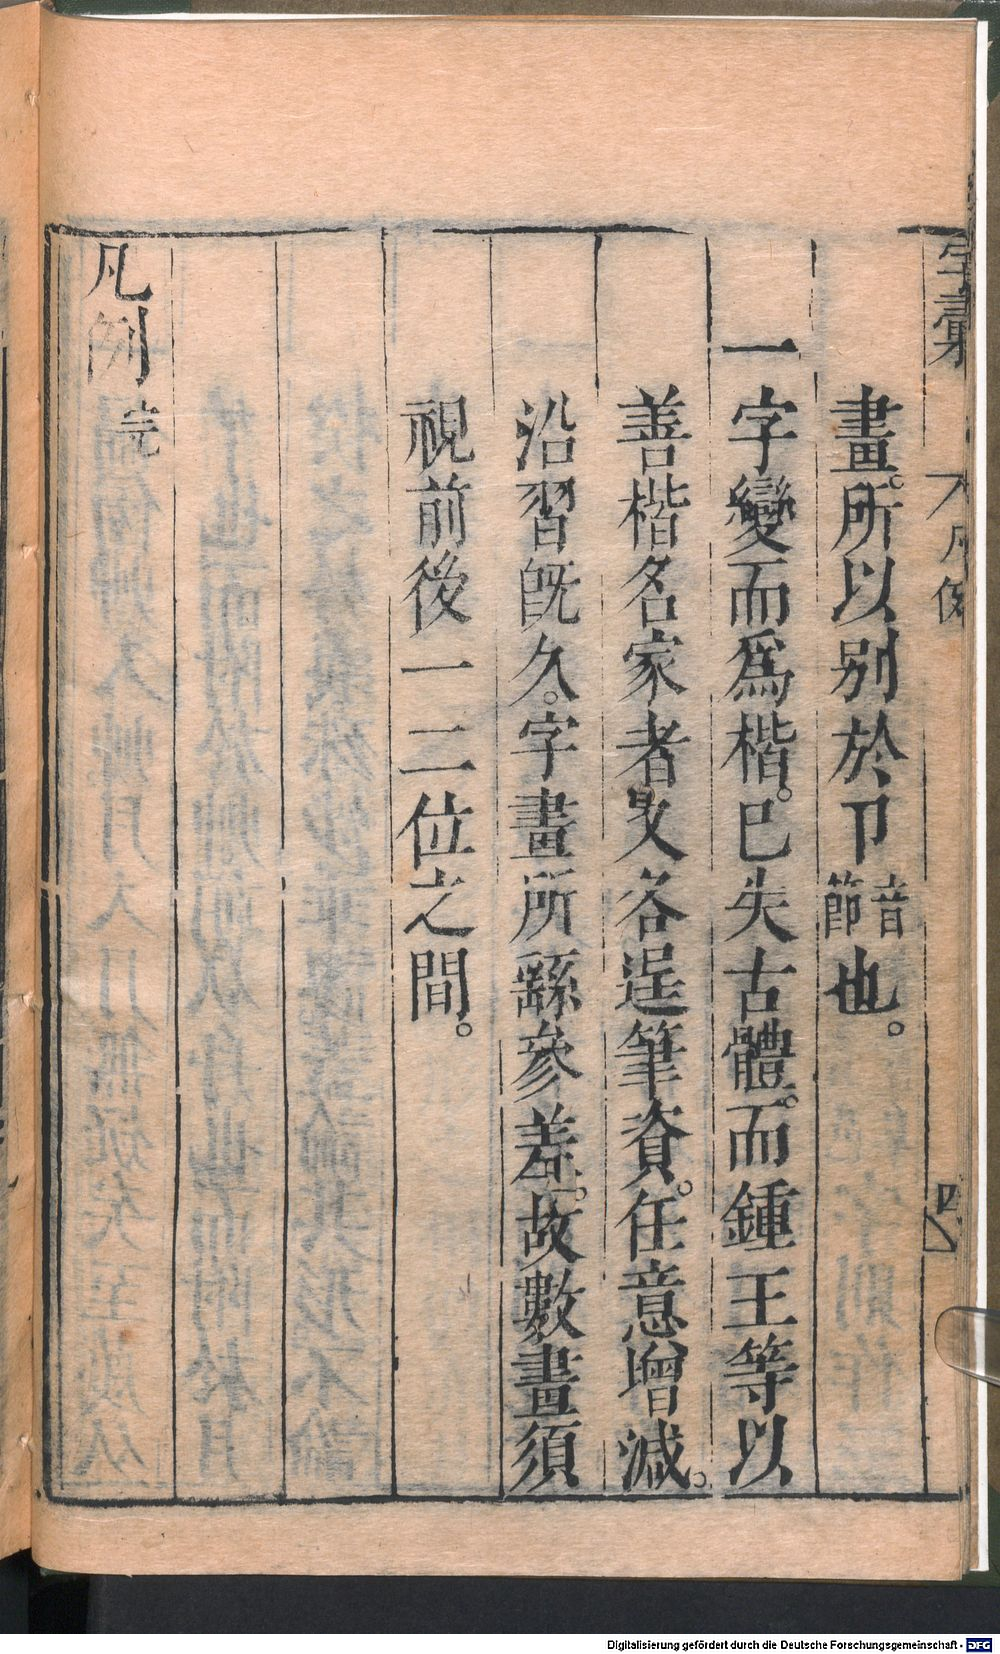 字彙
凡例
四
畫。所以别於卩音節也。
一字變而爲楷。已失古體。而鍾王等以
善楷名家者又各逞筆資。任意增減。
沿習既久。字畫所繇參差。故數畫須
視前後一二位之間。
凡例完
Digitalisierung gefördert durch die Deutsche Forschungsgemeinschaft - DFG